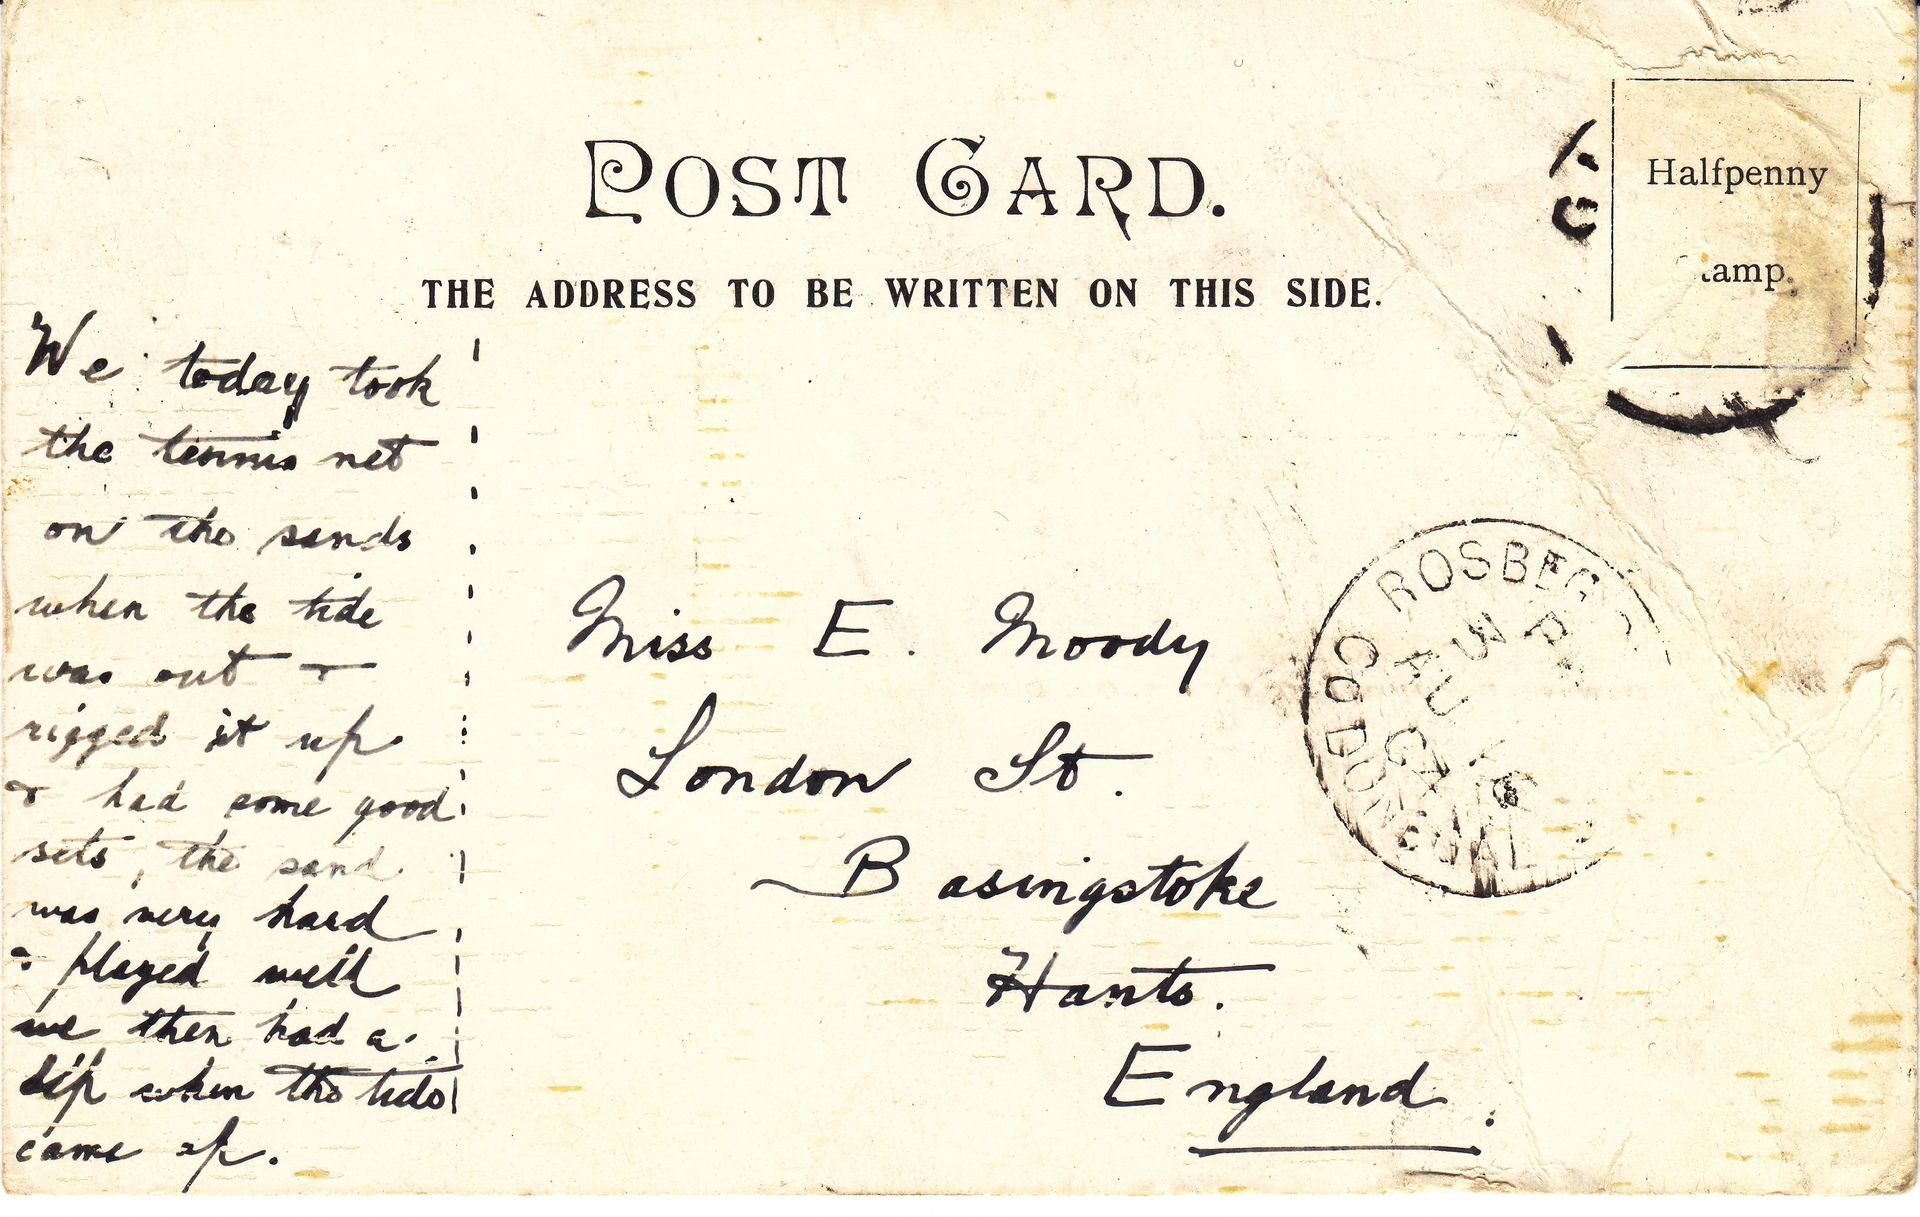 POST CARD.
THE ADDRESS TO BE WRITTEN ON THIS SIDE.
Halfpenny
tamp.
We today took
the tennis net
on the sands
when the tide
was out &
rigged it up
& had some good
sets, the sand
was very hard
& played well
we then had a
dip when the tide
came up.
Miss E. Moody
London St.
Basingstoke
Hants.
England.
ROSBEG
CO DONEGAL
AU